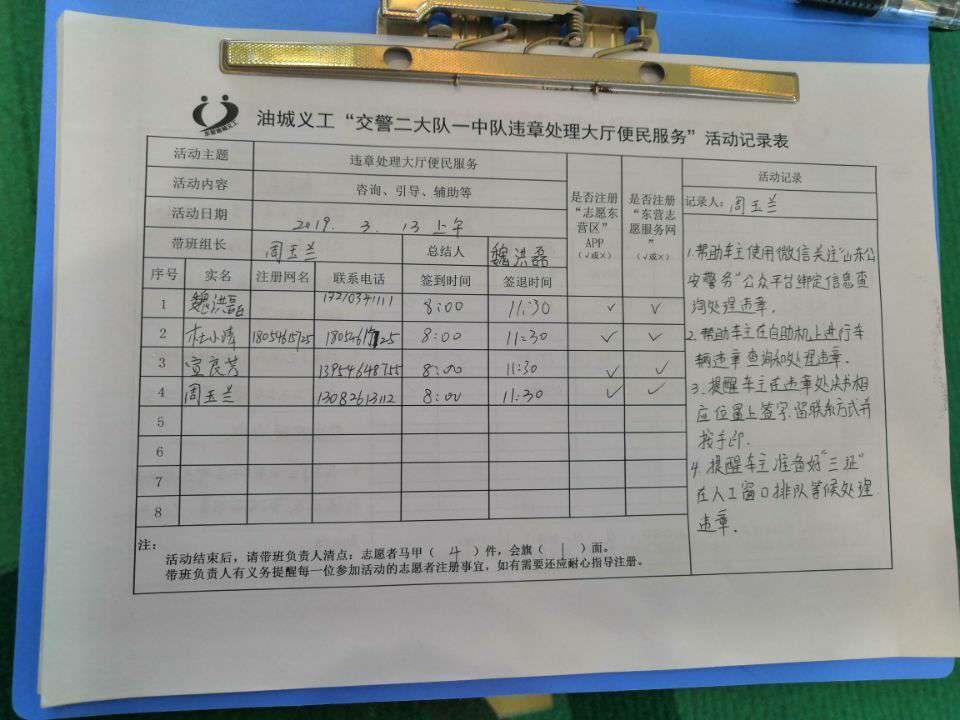 油城义工
油城义工“交警二大队一中队违章处理大厅便民服务”活动记录表
活动主题 违章处理大厅便民服务
活动内容 咨询、引导、辅助等
活动日期 2019. 3. 13 上午
带班组长 周玉兰 总结人 魏洪磊
是否注册“志愿东营区”APP（√或×）
是否注册“东营志愿服务网”（√或×）
序号 实名 注册网名 联系电话 签到时间 签退时间
1 魏洪磊 8:00 11:30 √ √
2 杜小涛 18054615725 8:00 11:30 √ √
3 宣良芳 13954648755 8:00 11:30 √ √
4 周玉兰 13082613112 8:00 11:30 √ √
5
6
7
8
活动记录
记录人：周玉兰
1.帮助车主使用微信关注“山东公
安警务”公众平台绑定信息查
询处理违章.
2.帮助车主在自助机上进行车
辆违章查询和处理违章.
3.提醒车主在违章处决书相
应位置上签字.留联系方式并
按手印.
4.提醒车主准备好“三证”
在人工窗口排队等候处理
违章.
注：
活动结束后，请带班负责人清点：志愿者马甲（ 4 ）件，会旗（ 1 ）面。
带班负责人有义务提醒每一位参加活动的志愿者注册事宜，如有需要还应耐心指导注册。